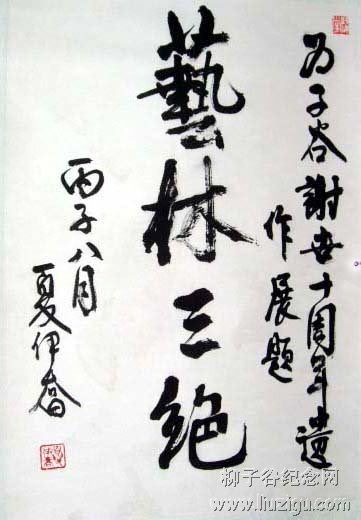 为子谷謝世十周年遺
作展題
藝林三绝
丙子八月
夏伊喬
柳子谷纪念网
www.liuzigu.com